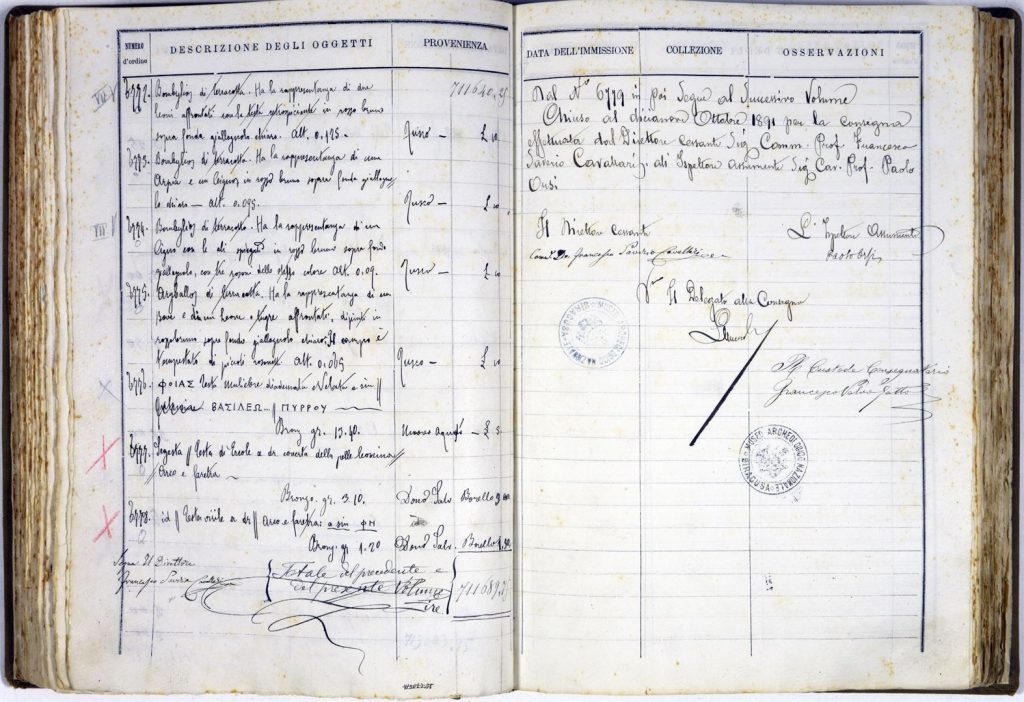 NUMERO d'ordine
DESCRIZIONE DEGLI OGGETTI
PROVENIENZA
711640,25
6772. Bombylios di terracotta. Ha la rappresentanza di due
leoni affrontati con la testa retrospiciente in rosso bruno
sopra fondo giallognolo chiaro. Alt. 0.125 —
£ 10
6773. Bombylios di terracotta. Ha la rappresentanza di una
Arpia e un Cigno in rosso bruno sopra fondo giallogno
lo chiaro — alt. 0.095.
£ 10
6774. Bombylios di terracotta. Ha la rappresentanza di un
Cigno con le ali spiegate in rosso bruno sopra fondo
giallognolo, con tre rosoni dello stesso colore alt. 0.09.
£ 10
6775. Aryballos di terracotta. Ha la rappresentanza di un
Bove e di un Leone o tigre affrontati, dipinti in
rosso bruno sopra fondo giallognolo chiaro; Il campo è
tempestato di piccoli rosoni. Alt. 0.065
£ 10
6776. ΦΟΙΑΣ Testa muliebre diademata e velata a sin ||
ΒΑΣΙΛΕΩ... || ΠΥΡΡΟΥ
Bronz. gr. 13.40.
Nuovo acquisto — £ 5
6777. Segesta || Testa di Ercole a dr. coverta della pelle leonina ||
Arco e faretra
Bronzo. gr. 3.10.
Dono Salv. Borello
6778. id || Testa virile a dr || Arco e faretra: a sin ΦΗ
Bronz. gr 1.20
Dono Salv. Borello
Il Direttore
Francesco Saverio Cavallari
Totale del precedente e
del presente Volume
Lire
711689,25
DATA DELL'IMMISSIONE
COLLEZIONE
OSSERVAZIONI
Dal N° 6779 in poi Segue al Successivo Volume
Chiuso al diciannove Ottobre 1891 per la consegna
effettuata dal Direttore Cessante Sig. Comm. Prof. Francesco
Saverio Cavallari, all'Ispettore Assumente Sig. Cav. Prof. Paolo
Orsi
Il Direttore Cessante
Francesco Saverio Cavallari
L'Ispettore Assumente
Paolo Orsi
Il Delegato alla Consegna
Il Custode Consegnatario
Francesco
MUSEO ARCHEOLOGICO NAZIONALE SIRACUSA
MUSEO ARCHEOLOGICO NAZIONALE SIRACUSA